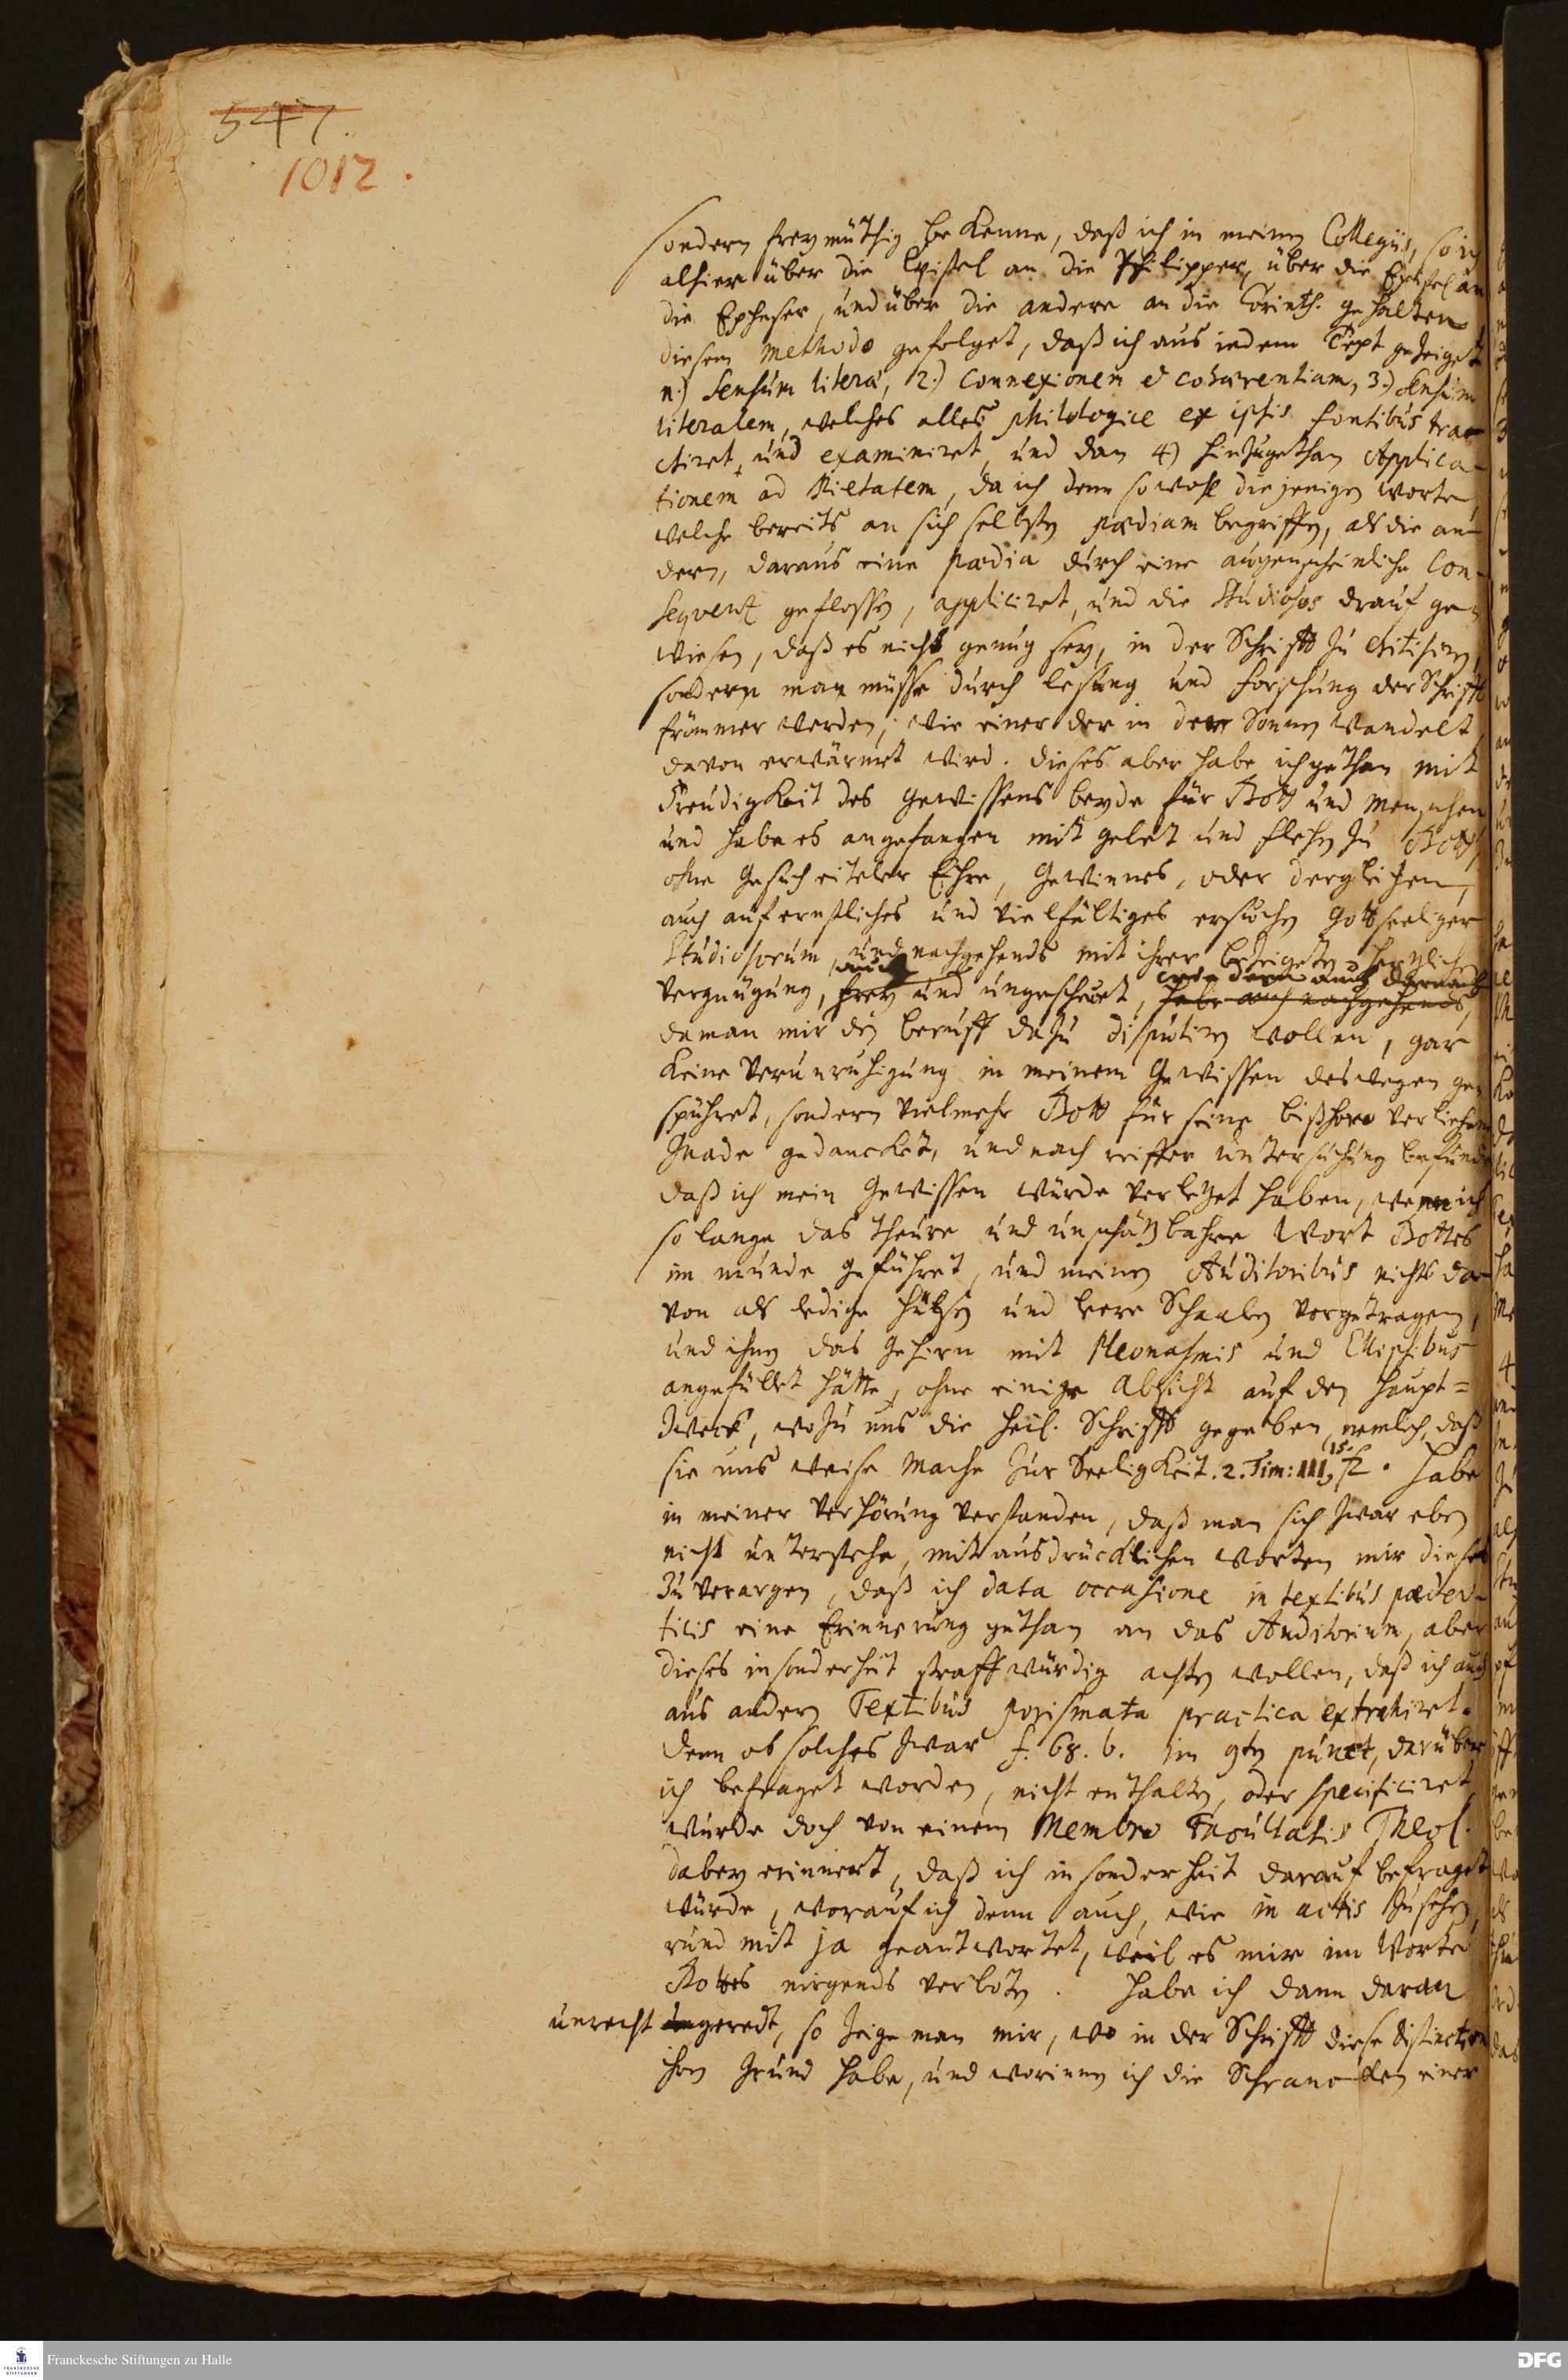 547.
1012.
sondern freymüthig bekenne, daß ich in meinen Collegiis, so ich
alhier über die Epistel an die Philipper, über die Epistel an
die Epheser, und über die andere an die Corinth. gehalten
diesem methodo gefolget, daß ich aus iedem Text gezeiget
1.) Sensum literæ, 2.) Connexionem et cohærentiam, 3.) Sensum
literalem, welches alles philologice ex ipsis fontibus tra-
ctiret, und examiniret, und dan 4) hinzugethan Applica-
tionem ad Pietatem, da ich denn sowohl diejenigen worte
welche bereits an sich selbsten pædiam begriffen, als die an-
dern, daraus eine pædia durch eine augenscheinliche Con-
sequentz geflossen, appliciret, und die Studiosos drauf ge-
wiesen, daß es nicht genug sey, in der Schrifft zu critisiren,
sondern man müsse durch lesung und forschung der Schrifft
frömmer werden, wie einer der in der Sonnen wandelt
davon erwärmet wird. dieses aber habe ich gethan mit
Freudigkeit des Gewissens beyde für Gott und menschen
und habe es angefangen mit gebet und flehen zu Gott,
ohne Gesuch eiteler Ehre, Gewinnes, oder dergleichen,
auch auf ernstliches und vielfältiges ersuchen Gottseeliger
Studiosorum, und nachgehends mit ihrer bezeigeten hertzlichen
auch wie denn auch darnach
vergnügung, frey und ungescheuet, habe auch nachgehends,
da man mir den beruff dazu disputiren wollen, gar
keine verunruhigung in meinem Gewissen deswegen ge-
spühret, sondern vielmehr Gott für seine bißhero verliehene
Gnade gedancket, und nach reiffer untersuchung befunden
daß ich mein Gewissen würde verletzet haben, wenn ich
so lange das theure und unschätzbahre Wort Gottes
im munde geführet, und meinen Auditoribus nichts da-
von als ledige hülsen und leere Schaalen vorgetragen,
und ihnen das Gehirn mit Pleonasmis und Ellipsibus
angefüllet hätte, ohne einige absicht auf den Haupt=
zweck, wozu uns die heil. Schrifft gegeben, nemlich, daß
15.
sie uns weise mache zur Seeligkeit. 2. Tim: III, Habe
in meiner verhörung verstanden, daß man sich zwar eben
nicht unterstehe, mit ausdrücklichen worten mir dieses
zu verargen, daß ich data occasione in textibus pædev-
ticis eine Erinnerung gethan an das Auditorium, aber
dieses insonderheit straffwürdig achten wollen, daß ich auch
aus andern Textibus porismata practica extrahiret.
denn ob solches zwar f. 68. b. im 9ten punct, darüber
ich befraget worden, nicht enthalten, oder specificiret,
wurde doch von einem Membro Facultatis Theol.
dabey erinnert, daß ich insonderheit darauf befraget
würde, worauf ich denn auch, wie in actis zu sehen,
rund mit ja geantwortet, weil es mir im Worte
Gottes nirgends verboten. Habe ich dann daran
unrecht geredt, so zeige man mir, wo in der Schrifft diese distinction
ihren Grund habe, und worinnen ich die Schrancken einer
Franckesche Stiftungen zu Halle
DFG